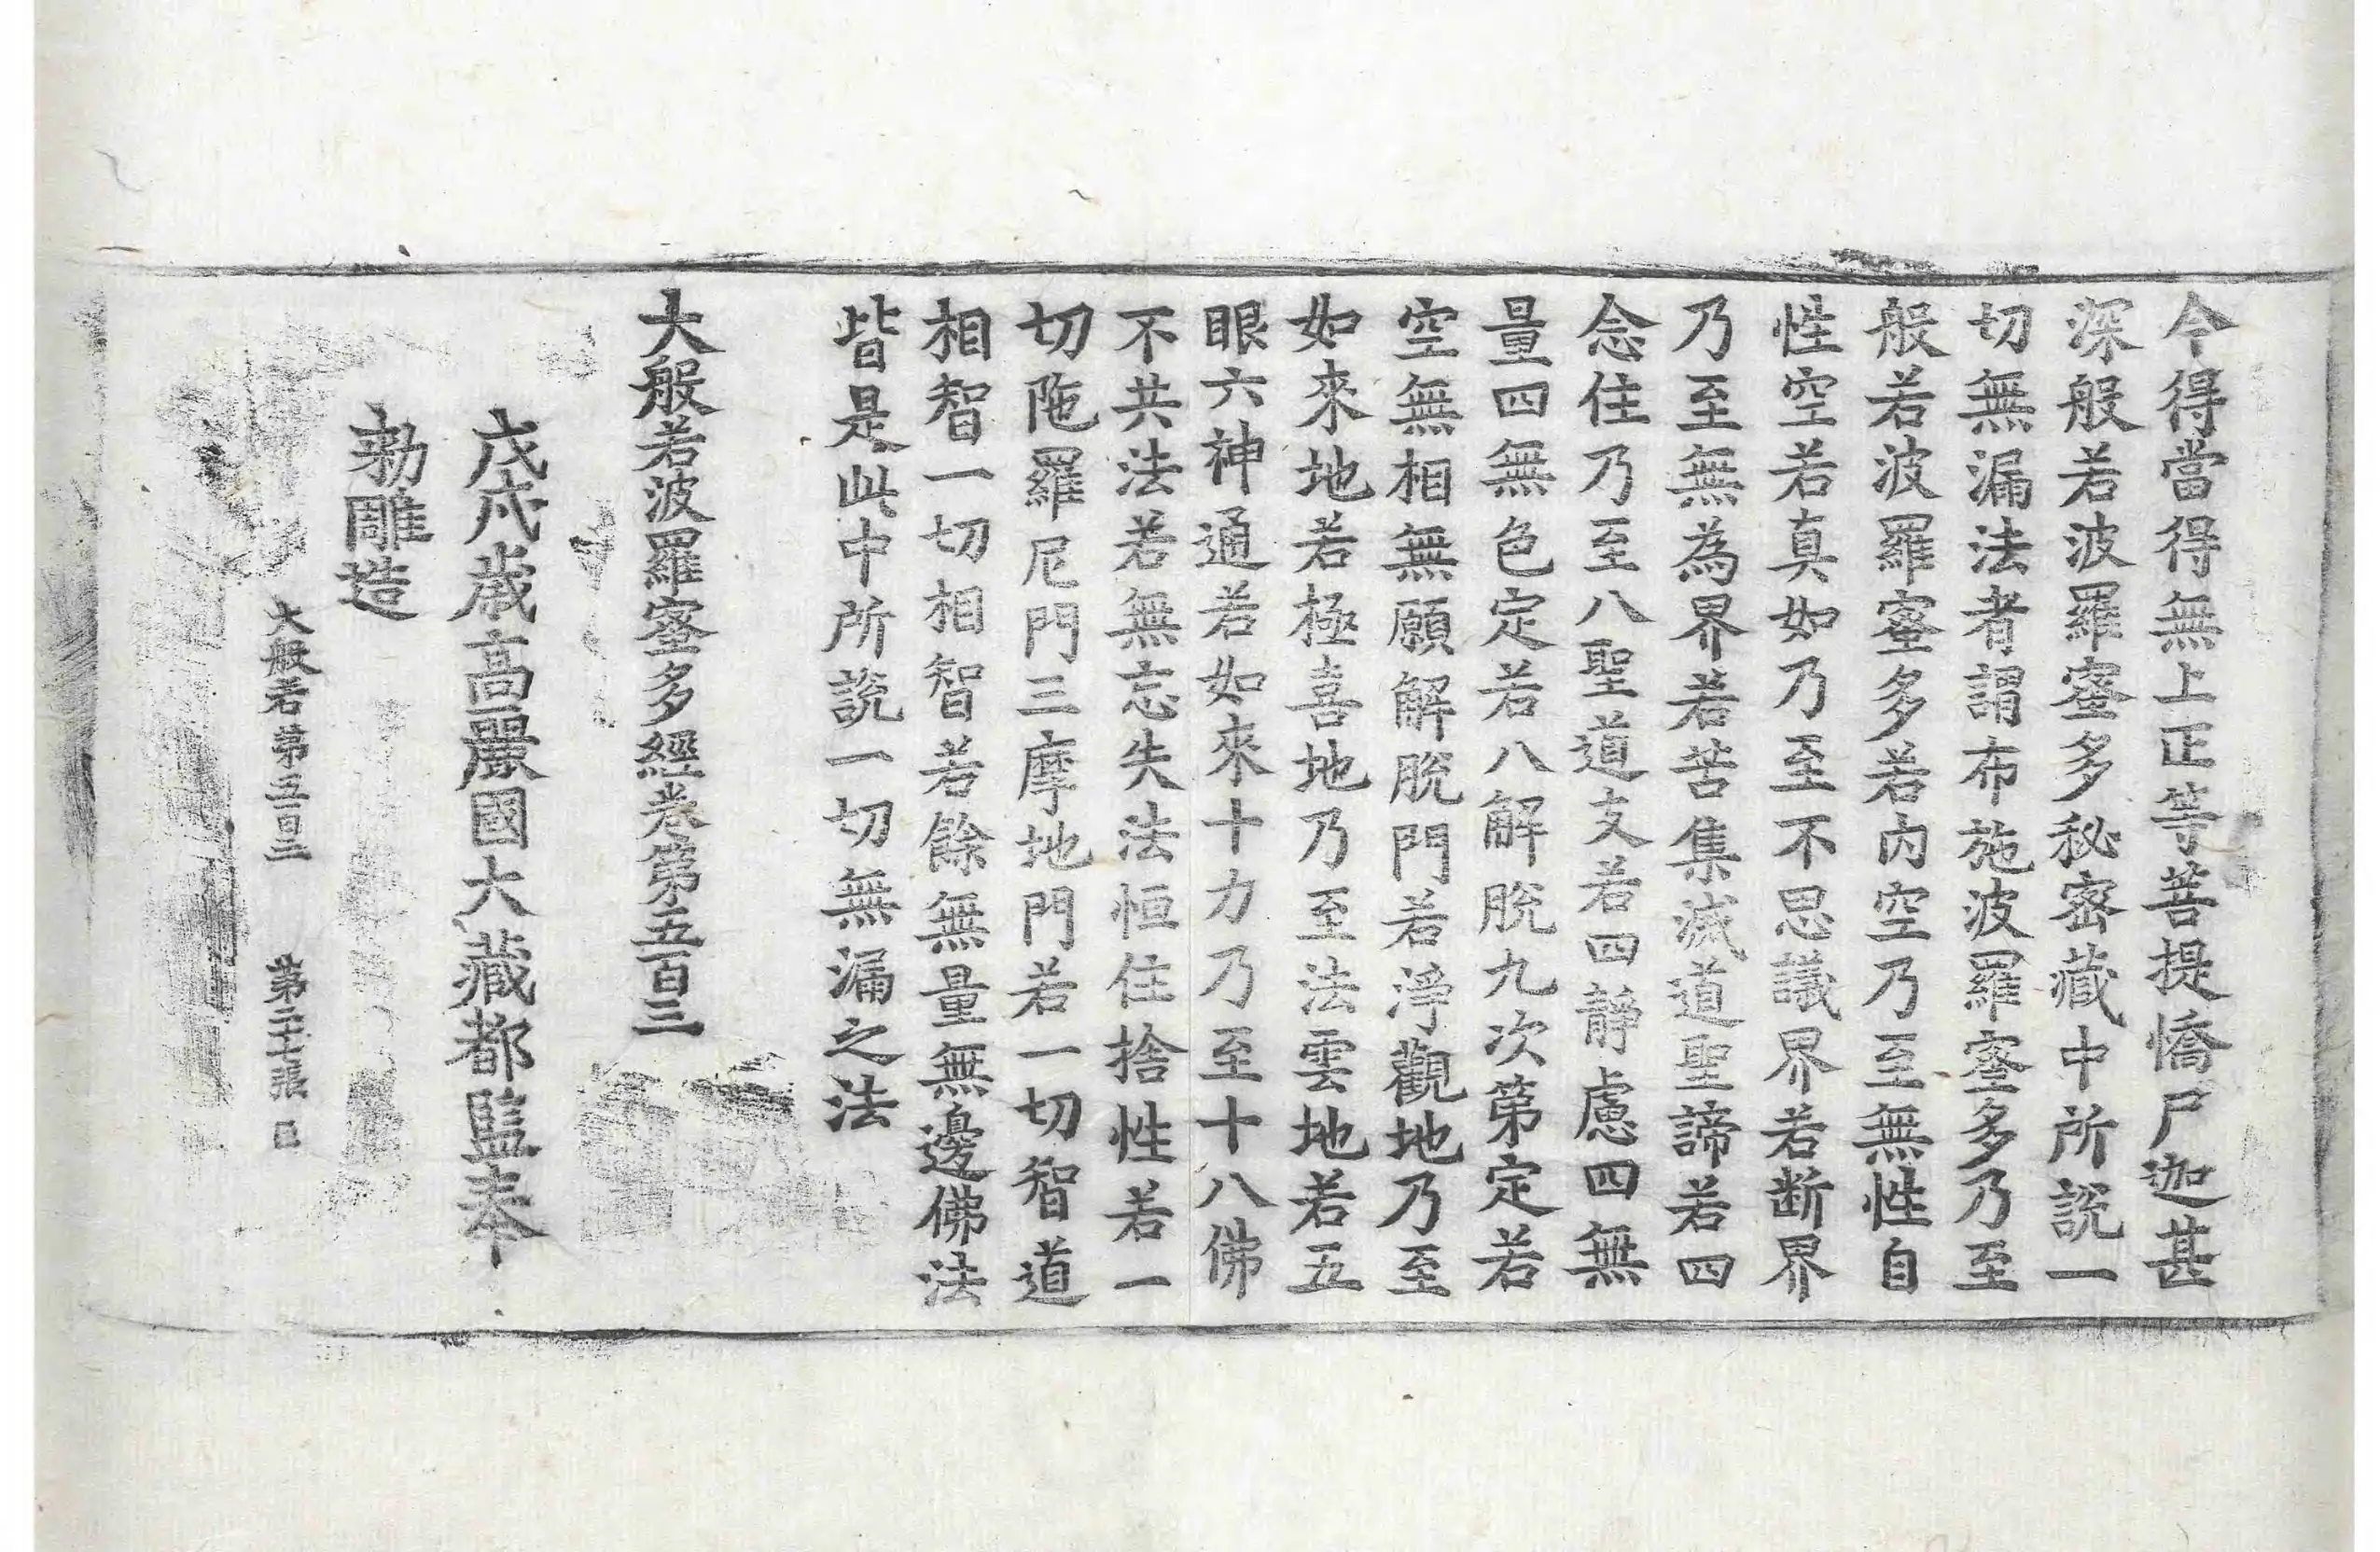 今得當得無上正等菩提憍尸迦甚
深般若波羅蜜多秘密藏中所說一
切無漏法者謂布施波羅蜜多乃至
般若波羅蜜多若內空乃至無性自
性空若真如乃至不思議界若断界
乃至無為界若苦集滅道聖諦若四
念住乃至八聖道支若四靜慮四無
量四無色定若八解脫九次第定若
空無相無願解脫門若淨觀地乃至
如來地若極喜地乃至法雲地若五
眼六神通若如來十力乃至十八佛
不共法若無忘失法恒住捨性若一
切陁羅尼門三摩地門若一切智道
相智一切相智若餘無量無邊佛法
皆是此中所說一切無漏之法
大般若波羅蜜多經卷第五百三
戊戌歲高麗國大藏都監奉
勅雕造
大般若第五百三 第二十七張